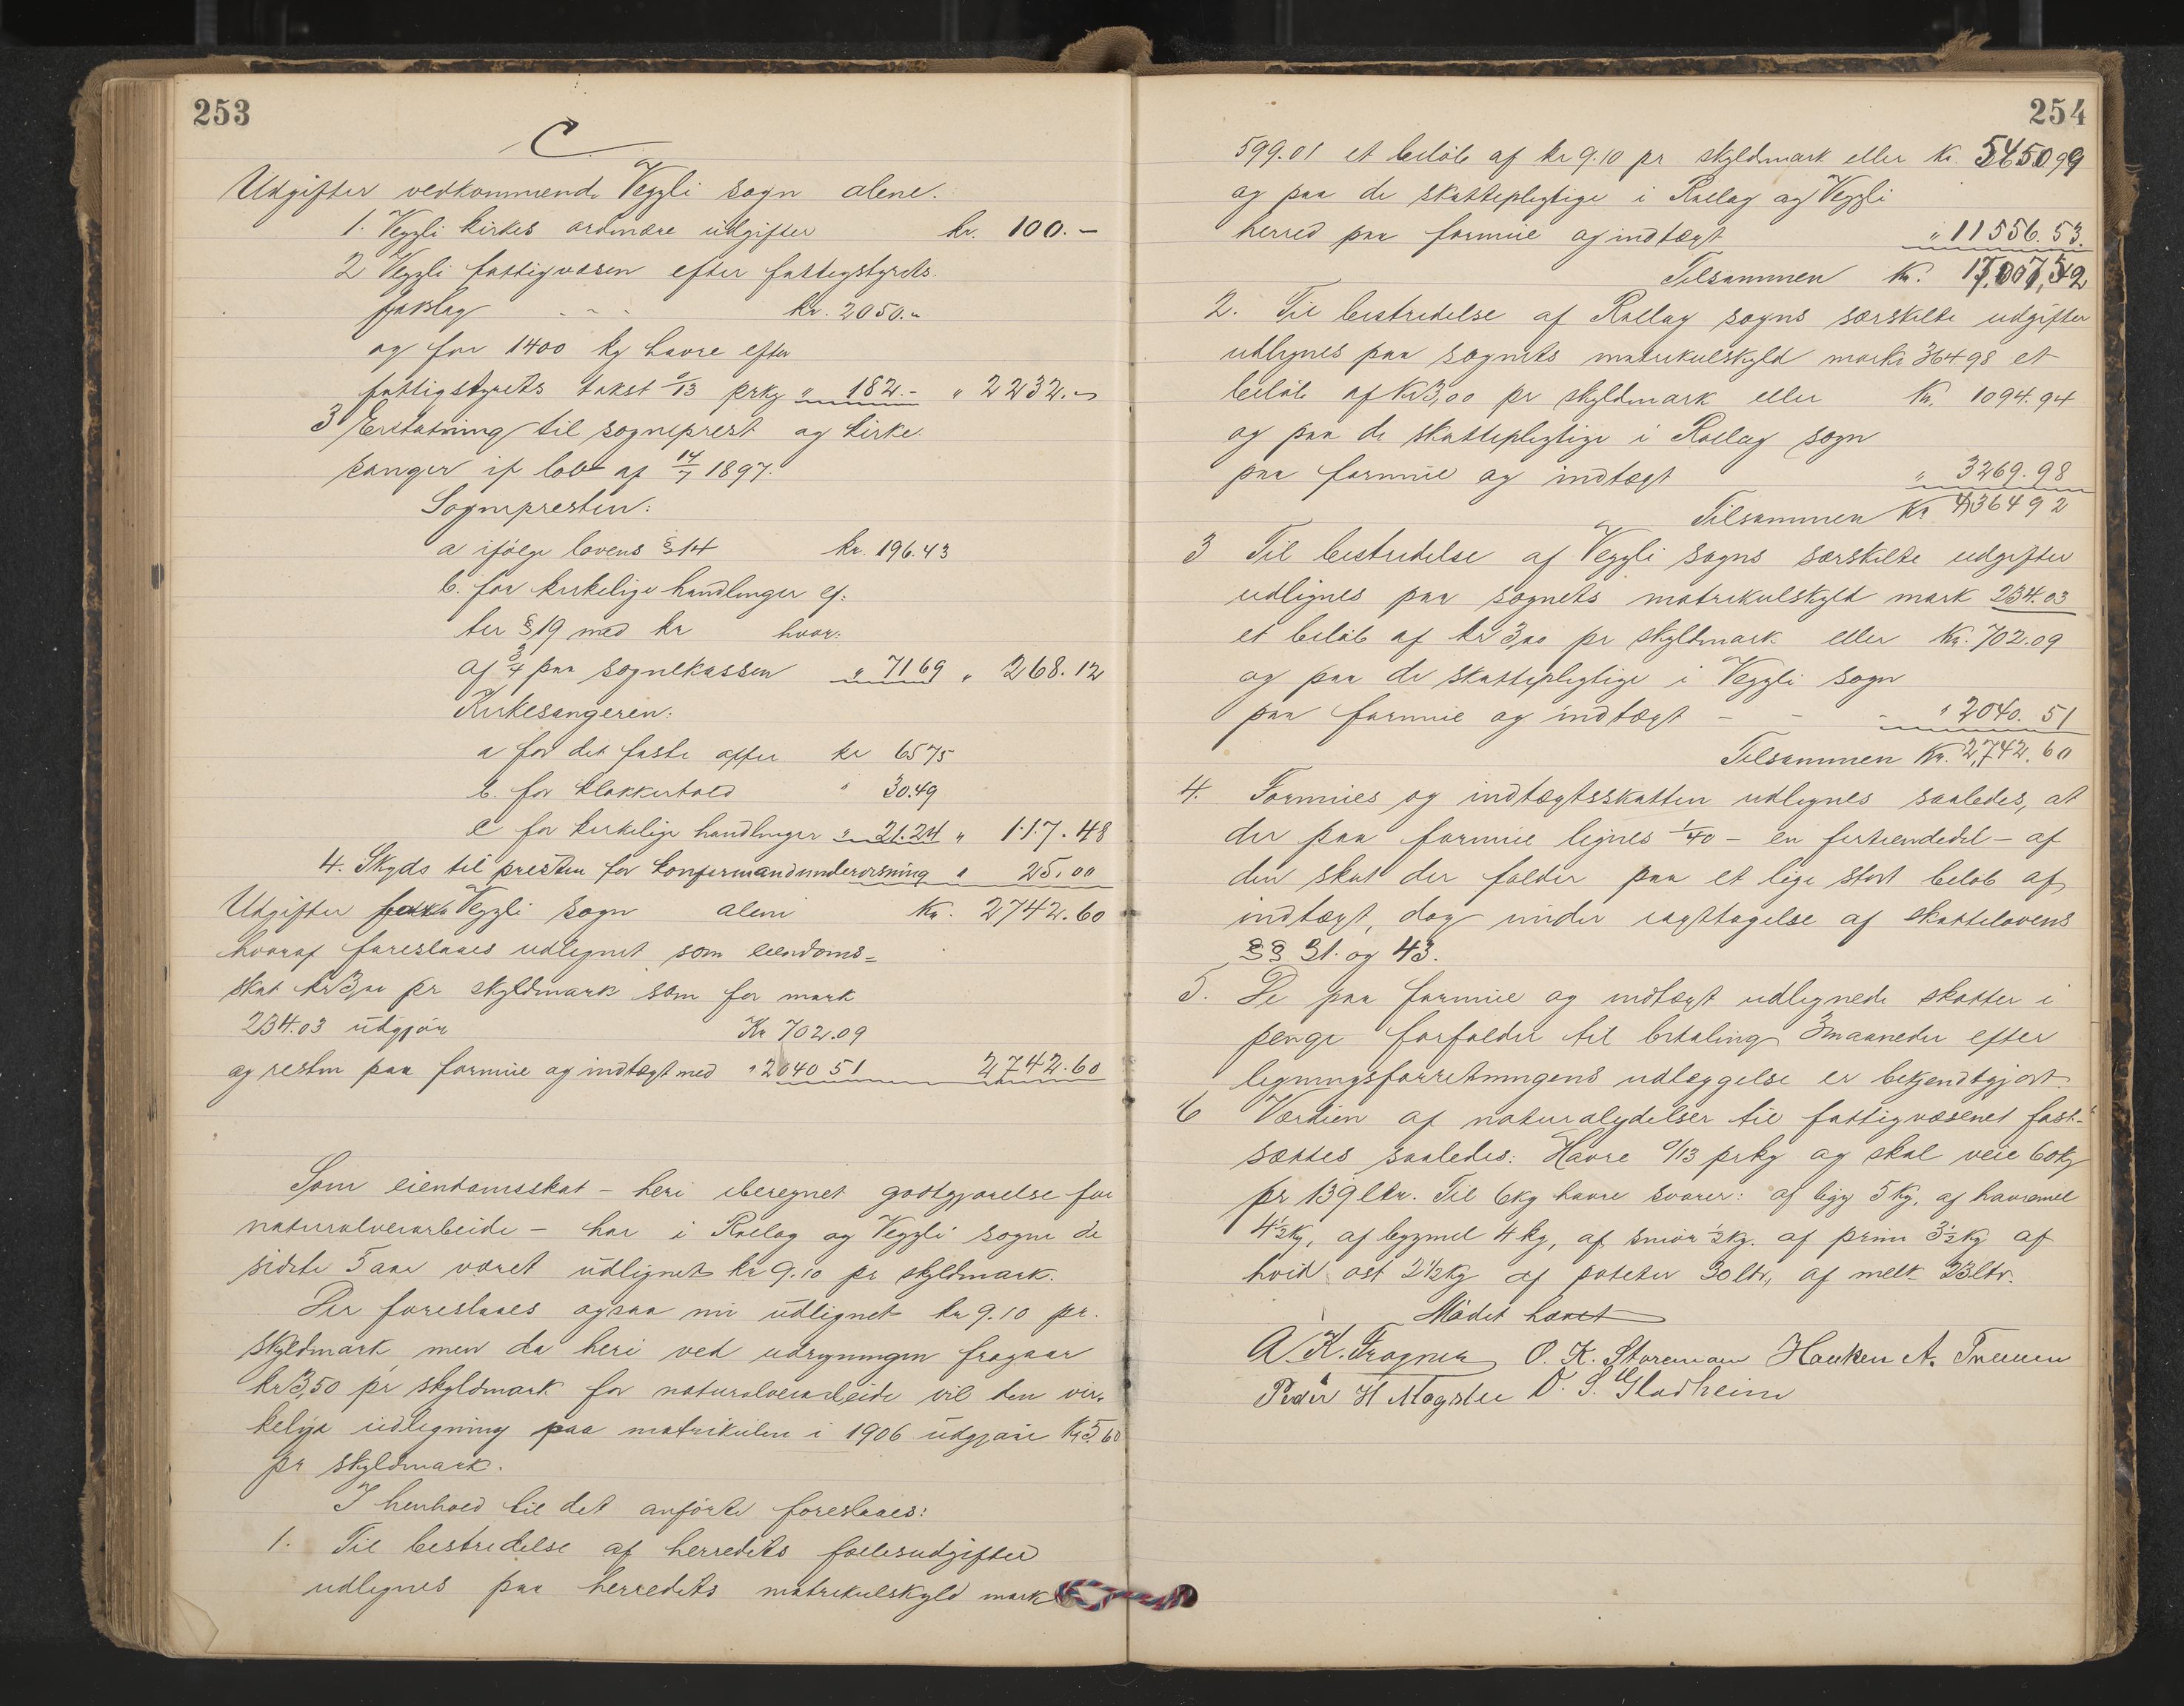 253
C
Udgifter vedkommende Veggli sogn alene.
1. Veggli kirkes ordinære udgifter kr. 100.-
2 Veggli fattigvæsen efter fattigstyrets
forslag - - - kr. 2050.-
og for 1400 kg havre efter
fattigstyrets takst 0/13 pr kg " 182.- " 2232.-
3 Erstatning til sogneprest og kirke
sanger if lov af 14/7 1897.
Sognepresten:
a ifølge lovens § 14 kr. 196.43
b. for kirkelige handlinger ef:
ter § 19 med kr hvor:
af 3/4 paa sognekassen " 71 69 " 268.12
Kirkesangeren:
a for det faste offer kr 65 75
b. for klokkerhold " 30.49
c for kirkelige handlinger " 21.24 " 117.48
4. Skyds til presten for konfirmandundervisning " 25,00
Udgifter Veggli sogn alene Kr. 2742.60
hvoraf foreslaaes udlignet som eiendoms=
skat kr 3,00 pr skyldmark som for mark
234.03 udgjør Kr 702.09
og resten paa formue og indtægt med " 2040 51 2742.60
Som eiendomsskat - heri iberegnet godtgjørelse for
naturalveiarbeide - har i Rollag og Veggli sogne de
sidste 5 aar været udlignet kr 9.10 pr skyldmark.
Der foreslaaes ogsaa nu udlignet kr 9.10 pr.
skyldmark men da heri ved udregningen fragaar
kr 3,50 pr skyldmark for naturalveiarbeide vil den vir-
kelige udligning paa matrikulen i 1906 udgjøre Kr 5.60
pr skyldmark.
I henhold til det anførte foreslaaes:
1. Til bestridelse af herredets fællesudgifter
udlignes paa herredets matrikulskyld mark
254
599.01 et beløb af kr 9.10 pr skyldmark eller Kr 5450 99
og paa de skattepligtige i Rollag og Veggli
herred paa formue og indtægt " 11556.53.
Tilsammen Kr. 17,007,52
2. Til bestridelse af Rollag sogns særskilte udgifter
udlignes paa sognets matrikulskyld mark 364 98 et
beløb af Kr 3,00 pr skyldmark eller Kr. 1094.94
og paa de skattepligtige i Rollag sogn
paa formue og indtægt " 3269.98
Tilsammen Kr 4,364 92
3 Til bestridelse af Veggli sogns særskilte udgifter
udlignes paa sognets matrikulskyld mark 234.03
et beløb af kr 3,00 pr skyldmark eller Kr. 702.09
og paa de skattepligtige i Veggli sogn
paa formue og indtægt - - - " 2040.51
Tilsammen Kr. 2,742.60
4. Formues og indtægtsskatten udlignes saaledes, at
der paa formue lignes 1/40 - en firtiendedel - af
den skat der falder paa et lige stort beløb af
indtægt, dog under iagttagelse af skattelovens
§§ 31. og 43.
5. De paa formue og indtægt udlignede skatter i
penge forfalder til betaling 3 maaneder efter
ligningsforretningens udlæggelse er bekjendtgjort.
6 Værdien af naturalydelser til fattigvæsenet fast-
sættes saaledes: Havre 0/13 pr kg og skal veie 60 kg
pr 139 ltr. Til 6 kg havre svarer: af byg 5 kg, af havremel
4 1/2 kg, af bygmel 4 kg, af smør 1/2 kg. af prim 3 1/2 kg af
hvid ost 2 1/2 kg af poteter 30 ltr, af melk 23 ltr.
Mødet hævet
A. K. Fragner O. K. Storemoen Haaken A.
Peder H Mogster O. S. Gladheim